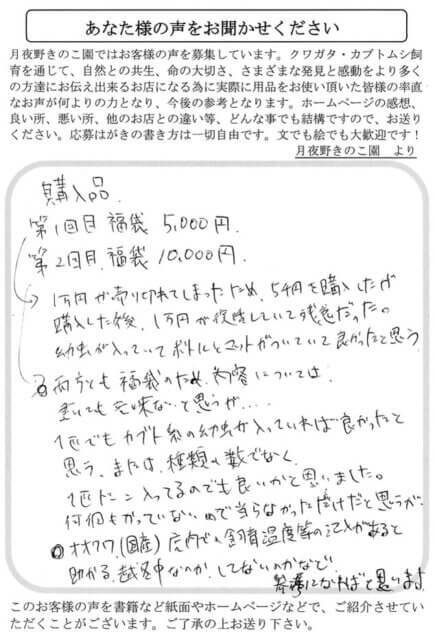 あなた様の声をお聞かせください
月夜野きのこ園ではお客様の声を募集しています。クワガタ・カブトムシ飼
育を通じて、自然との共生、命の大切さ、さまざまな発見と感動をより多く
の方達にお伝え出来るお店になる為に実際に用品をお使い頂いた皆様の率直
なお声が何よりの力となり、今後の参考となります。ホームページの感想、
良い所、悪い所、他のお店との違い等、どんな事でも結構ですので、お送り
ください。応募はがきの書き方は一切自由です。文でも絵でも大歓迎です！
月夜野きのこ園　より
購入品.
第1回目 福袋 5,000円.
第2回目. 福袋 10,000円.
1万円が売り切れてしまったため、5千円を購入したが
購入した後、1万円が復活していて残念だった。
幼虫が入っていてボトルとマットがついていて良かったと思う
両方とも福袋のため、内容については.
書いても意味ないと思うが....
1匹でもカブト系の幼虫が入っていれば良かったと
思う。または、種類や数でなく、
1匹ドーン入ってるのでも良いかと思いました。
何個もかっていないので当らなかっただけだと思うが、
オオクワ.(国産) 店内での飼育温度等の記入があると
助かる. 越冬中なのか、してないのかなど.
参考になればと思います
このお客様の声を書籍など紙面やホームページなどで、ご紹介させてい
ただくことがございます。ご了承の上お送り下さい。